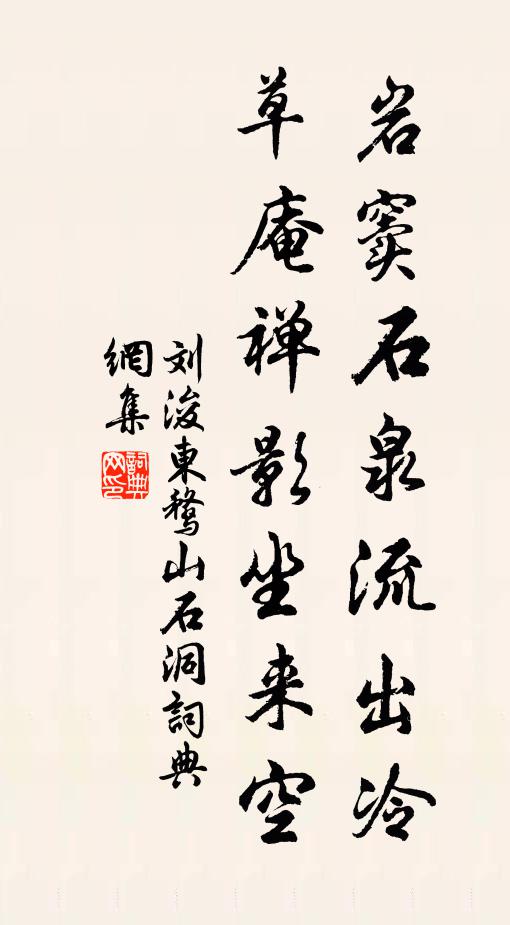 岩窦石泉流出冷
草庵禅影坐来空
刘浚東鹜山石洞詞典
網集
詞典網印